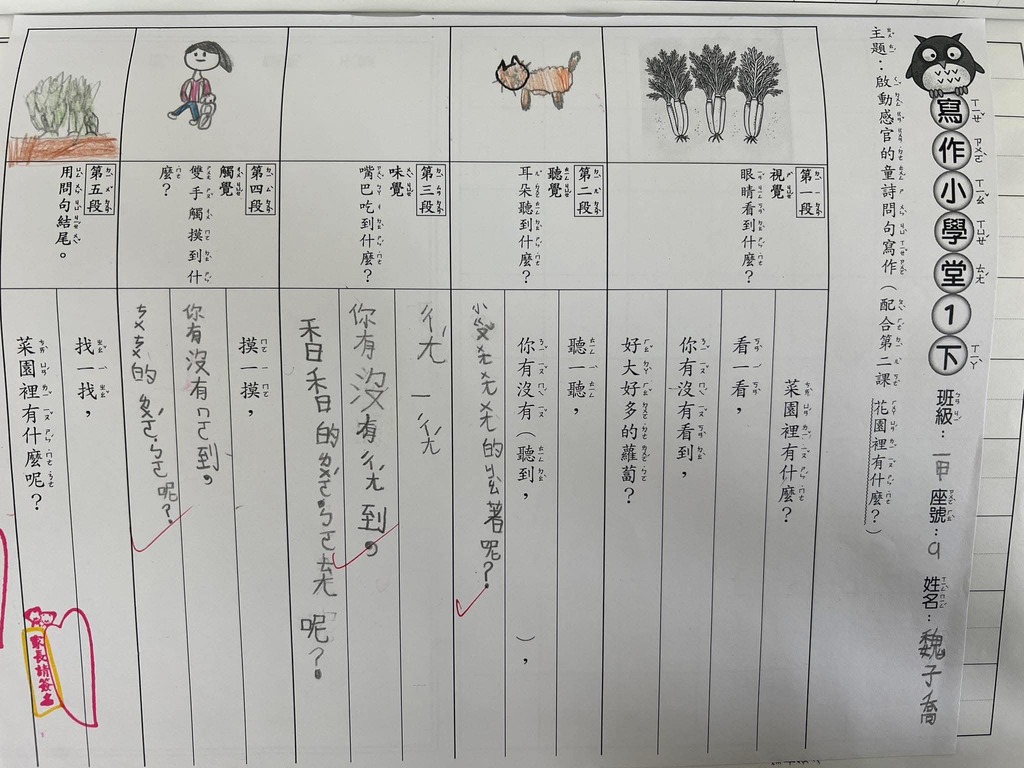 寫作小學堂1下
班級：一甲 座號：9 姓名：魏子喬
主題：啟動感官的童詩問句寫作（配合第二課 花園裡有什麼？）
第一段
視覺
眼睛看到什麼？
菜園裡有什麼？
看一看，
你有沒有看到，
好大好多的蘿蔔？
第二段
聽覺
耳朵聽到什麼？
聽一聽，
你有沒有（聽到， ），
著呢？
第三段
味覺
嘴巴吃到什麼？
ㄔㄤ一ㄔㄤ
你有沒有ㄔㄤ到。
的ㄌㄨㄛˊㄅㄛ˙ㄊㄤ呢？
第四段
觸覺
雙手觸摸到什麼？
摸一摸，
你有沒有ㄇㄛ到，
ㄘㄨㄘㄨ的ㄌㄨㄛˊㄅㄛ˙呢？
第五段
用問句結尾。
找一找，
菜園裡有什麼呢？
家長請簽名